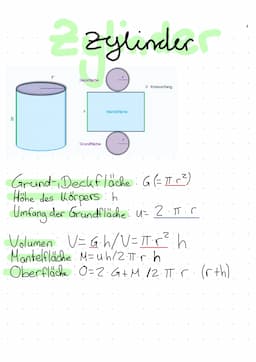 Zylinder
Zylinder
r
h
Deckfläche
r
Mantelfläche
Grundfläche
r
Grund-, Deckfläche: G (= π r²)
Höhe des Körpers: h
Umfang der Grundfläche: u = 2 · π · r
Volumen V = G·h / V = π · r² · h
Mantelfläche M = u·h / 2 π · r · h
Oberfläche O = 2 · G + M / 2 π r · (r+h)